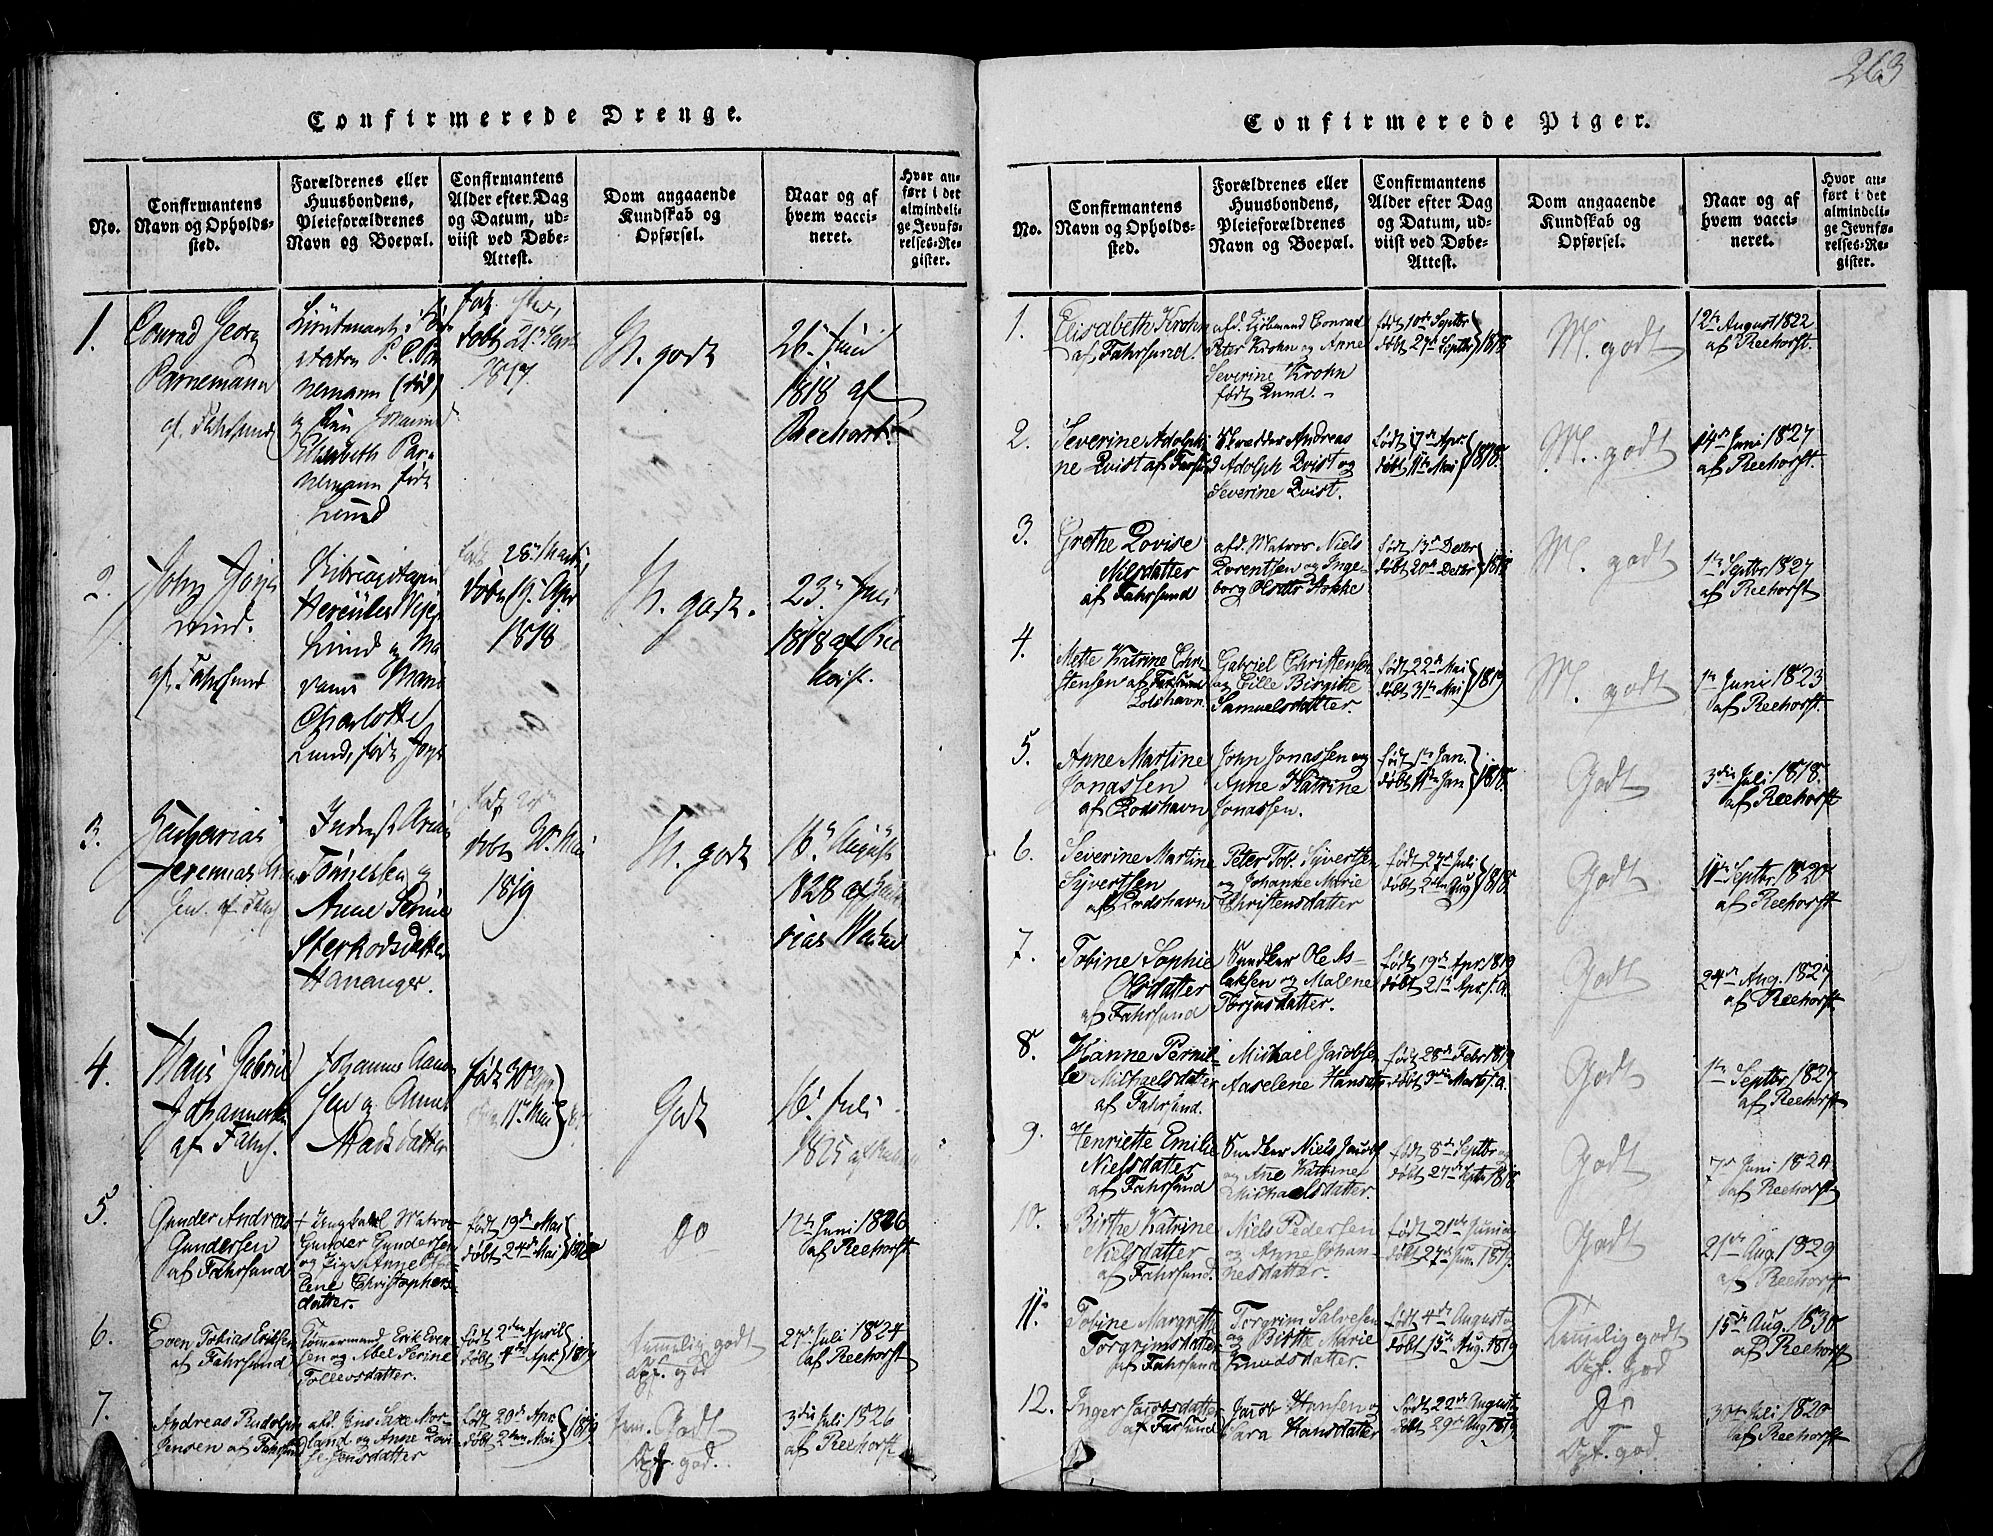 263
Confirmerede Drenge.
No.
Confirmantens
Navn og Opholds-
sted.
Forældrenes eller
Huusbondens,
Pleieforældrenes
Navn og Boepæl.
Confirmantens
Alder efter Dag
og Datum, ud-
viist ved Døbe-
Attest.
Dom angaaende
Kundskab og
Opførsel.
Naar og af
hvem vacci-
neret.
Hvor an-
ført i det
almindeli-
ge Jevnfø-
relses-Re-
gister.
1.
Conrad Georg
Parnemann
af Fahrsund
Lieutenant i
P. C. Par-
nemann (død)
og Johanne
Elisabeth Par-
nemann født
Lund
født
døbt 21 Sept
1817.
M. godt
26 Juni
1818 af
Reehorst.
2.
John
Lund.
af Fahrsund
Hercules
Lund og Ma-
Charlotte
Lund, født
28 Marts
døbt Apr
1818
M. godt.
23 Juli
1818 af Ree
horst.
3.
Zacharias
Jeremias
af Fahrs
Tønnesen og
Anne Serine
Sterkodsdatter
Hananger.
døbt 20 Mai
1819
M. godt
16 August
1828 af
4.
Hans Gabriel
Johannesen
af Fahrs.
Johannes Aanen
sen og Anne
Madsdatter
født 30 Apr
11 Mai
Godt
16 Juli
1825 af
5.
Gunder Andreas
Gundersen
af Fahrsund
Ungkarl Matros
Gunder Gundersen
og Pige Anne
lene Christophers-
datter.
født 19de Mai
døbt 24de Mai
Do
12te Juni 1826
af Reehorst
6.
Even Tobias Eriksen
af Fahrsund
Tømermand Erik Even-
sen og Abel Serine
Tollevsdatter.
født 2den April
døbt 4de Apr. 1819
temmelig godt
Opf. god
27de Juli 1824
af Reehorst
7.
Andreas Rudolph
Jensen af Fahrsund
afd. Jens Saxe Mor-
land og Anne Lovi-
se Jonsdatter
født 20de Apr.
døbt 2den Mai 1819
Tem. Godt
Opf. god.
3die Juli 1826
af Reehorst
Confirmerede Piger.
No.
Confirmantens
Navn og Opholds-
sted.
Forældrenes eller
Huusbondens,
Pleieforældrenes
Navn og Boepæl.
Confirmantens
Alder efter Dag
og Datum, ud-
viist ved Døbe-
Attest.
Dom angaaende
Kundskab og
Opførsel.
Naar og af
hvem vacci-
neret.
Hvor an-
ført i det
almindeli-
ge Jevnfø-
relses-Re-
gister.
1.
Elisabeth Krohn
af Fahrsund.
afd. Kjöbmand Conrad
Peter Krohn og Anne
Severine Krohn
født Lund.
født 10de Septbr
døbt 27de Septbr 1818
M. godt
12te August 1822
af Reehorst.
2.
Severine Adolphi-
ne Qvist af Farsund
Skrædder Andreas
Adolph Qvist og
Severine Qvist.
født 17de Apr.
døbt 11te Mai 1818.
M. godt
14de Juni 1827
af Reehorst.
3.
Grethe Lovise
Nilsdatter
af Fahrsund
afd. Matros Niels
Lorentsen og Inge-
borg Olsdtr Hokke
født 13de Decbr
døbt 20de Decbr 1818
M. godt
1te Septbr 1827
af Reehorst
4.
Mette Katrine Chri-
stensen af Fahrsund
Lodshavn
Gabriel Christensen
og Eille Birgitte
Samuelsdatter.
født 22de Mai
døbt 31te Mai 1819
M. godt
1te Juni 1823
af Reehorst.
5.
Anne Martine
Jonassen
af Lodshavn
John Jonassen og
Anne Katrine
Jonassen.
født 1te Jan.
døbt 11te Jan 1818.
Godt
3die Juli 1818.
af Reehorst
6.
Severine Martine
Syvertsen
af Lodshavn
Peter Tob. Syvertsen
og Johanne Marie
Christensdatter
født 27de Juli
døbt 2den Aug 1818.
Godt
11te Septbr 1820
af Reehorst
7.
Tobine Sophie
Olsdatter
af Fahrsund
Snedker Ole As-
laksen og Malene
Torjusdatter.
født 19de Apr. 1819
døbt 21de Apr. s. a.
Godt
24de Aug. 1827
af Reehorst
8.
Hanne Pernil-
le Michaelsdatter
af Fahrsund.
Michael Jacobsen
Aaselene Hansdtr
født 28de Febr 1819
døbt 3die Marts s. a.
Godt
1te Septbr 1827
af Reehorst
9.
Henriette Emilie
Nielsdatter
af Fahrsund
Snedker Niels Jacobs.
og Ane Katrine
Michaelsdatter.
født 8de Septbr og
døbt 27de Septbr 1818
Godt
7de Juni 1820
af Reehorst
10.
Birthe Katrine
Nielsdatter
af Fahrsund.
Niels Pedersen
og Anne Johan-
nesdatter.
født 21de Juni og
døbt 27de Jun. 1819.
Godt
21de Aug. 1829
af Reehorst
11.
Tobine Margrethe
Torgrimsdatter
af Fahrsund
Torgrim Salvesen
og Birthe Marie
Knudsdatter.
født 4de August og
døbt 15de Aug. 1819
Temmelig godt
Opf. God
15de Aug. 1830
af Reehorst
12.
Inger Jacobsdatter
af Farsund
Jacob Hansen og
Sara Hansdatter
født 22de August
døbt 29de Aug 1819
Do
Opf. god.
3die Juli 1820
af Reehorst